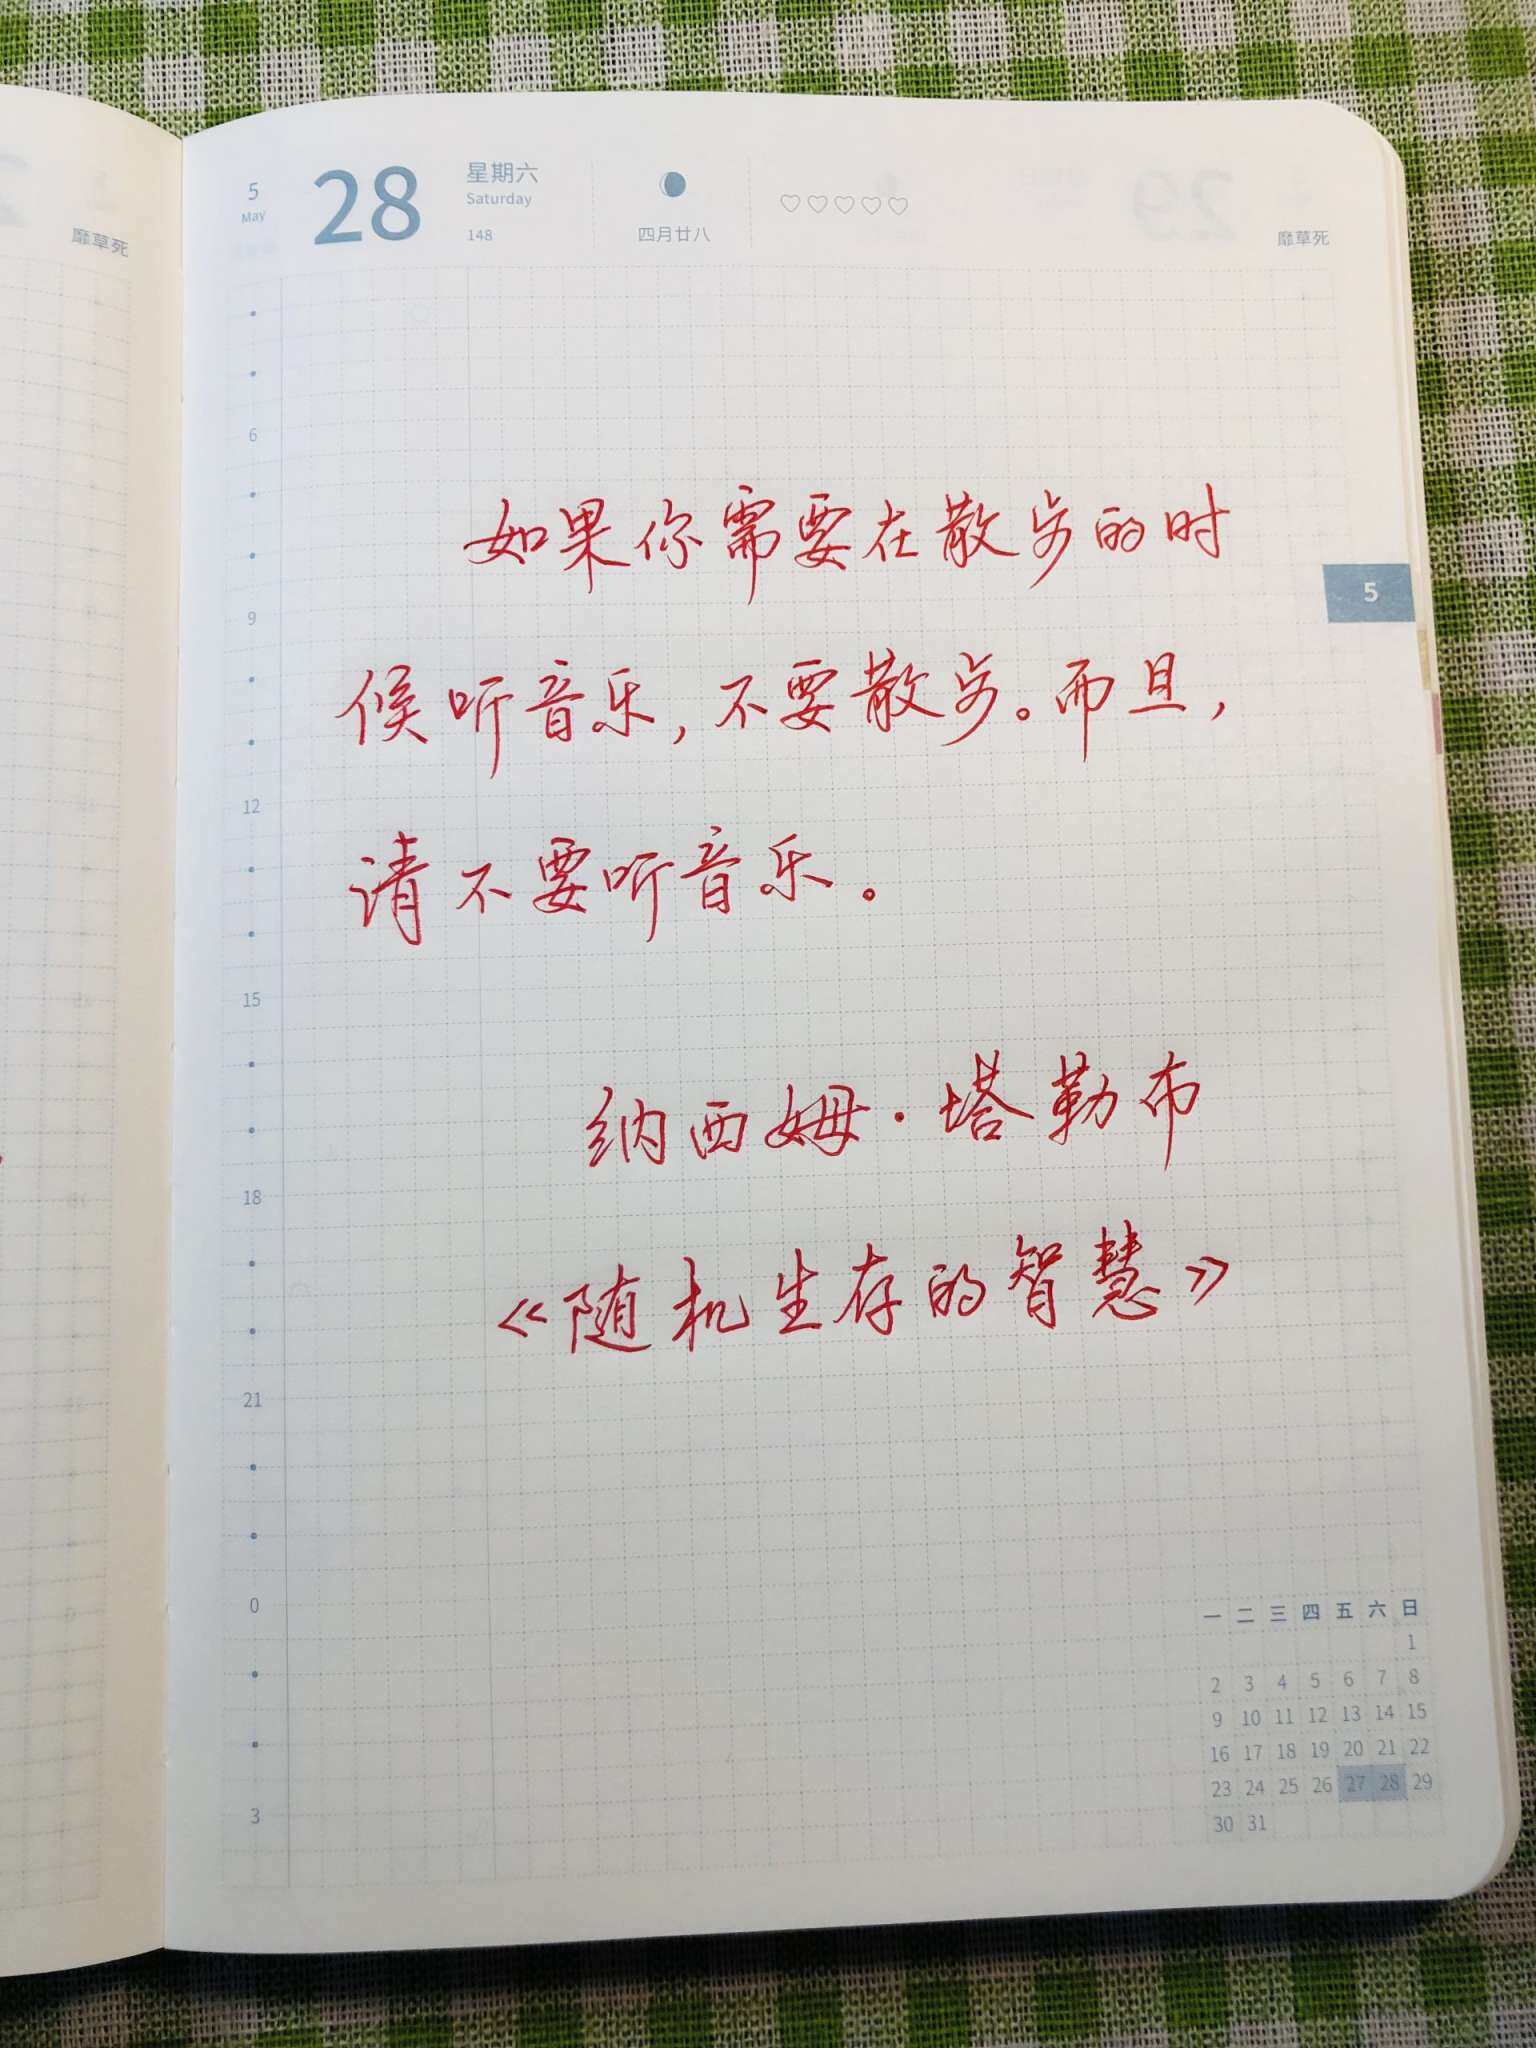 5
May
28
星期六
Saturday
148
四月廿八
靡草死
靡草死
6
9
12
15
18
21
0
3
如果你需要在散步的时
候听音乐,不要散步。而且,
请不要听音乐。
纳西姆·塔勒布
《随机生存的智慧》
5
一 二 三 四 五 六 日
1
2 3 4 5 6 7 8
9 10 11 12 13 14 15
16 17 18 19 20 21 22
23 24 25 26 27 28 29
30 31